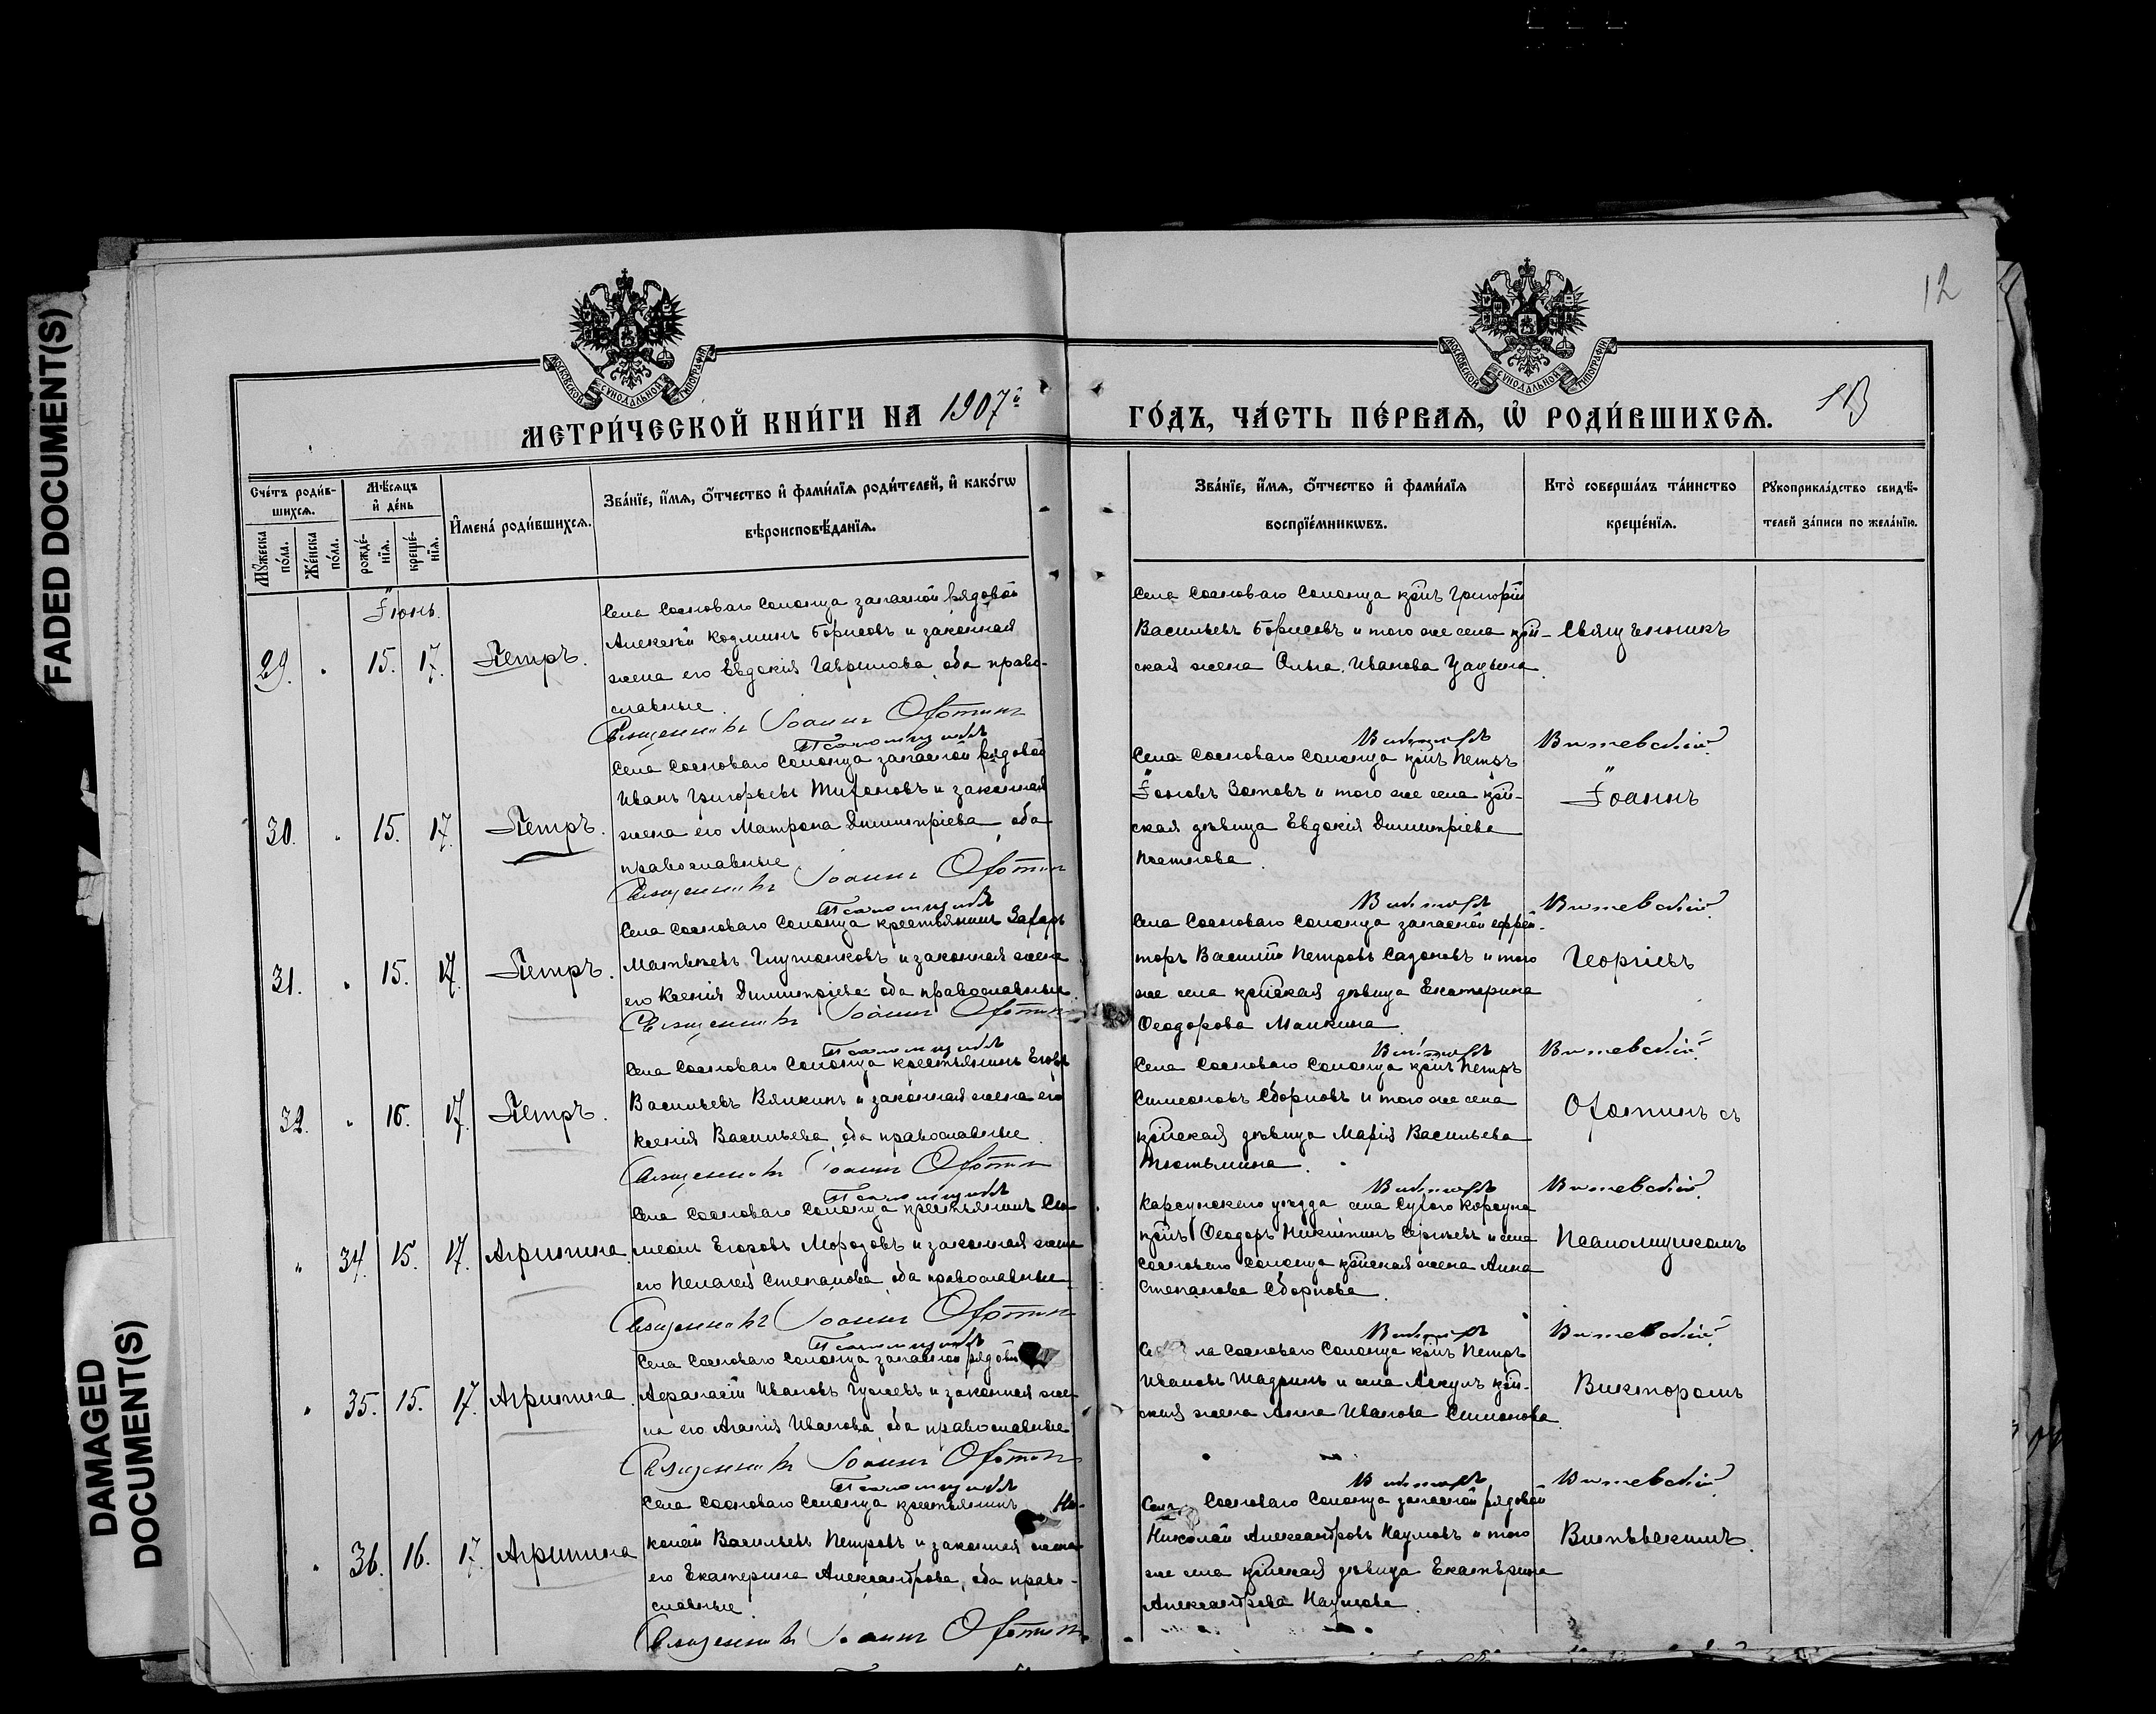 FADED DOCUMENT(S)
DAMAGED
DOCUMENT(S)
12
МОСКОВСКОЙ СѴНОДАЛЬНОЙ ТИПОГРАФІИ
МОСКОВСКОЙ СѴНОДАЛЬНОЙ ТИПОГРАФІИ
МЕТРИ́ЧЕСКОЙ КНИ́ГИ НА 1907й
ГО́ДЪ, ЧА́СТЬ ПЕ́РВАѦ, Ѡ҆ РОДИ́ВШИХСѦ.
Сче́тъ роди́в-
шихсѧ.
Мꙋ́жеска
по́ла.
Же́нска
по́ла.
Мѣ́сѧцъ
и҆ де́нь
рожде́-
нїѧ.
креще́-
нїѧ.
И҆мена̀ роди́вшихсѧ.
Зва́нїе, и҆́мѧ, ѻ҆́тчество и҆ фами́лїѧ роди́телей, и҆ како́гѡ
вѣроисповѣ́данїѧ.
Зва́нїе, и҆́мѧ, ѻ҆́тчество и҆ фами́лїѧ
воспрїе́мникѡвъ.
Кто̀ соверша́лъ та́инство
креще́нїѧ.
Рꙋкоприкла́дство свидѣ́-
телей за́писи по жела́нїю.
Іюнь.
29. " 15. 17. Петръ.
Села Сосноваго Солонца запасной рядовой
Алексѣй Козминъ Борисовъ и законная
жена его Евдокія Гаврилова, оба право-
славные.
Священникъ Іоаннъ Охотинъ
Псаломщикъ
Села Сосноваго Солонца крⷭ҇нъ Григорій
Васильевъ Борисовъ и того же села крⷭ҇н-
ская жена Ольга Иванова
Викторъ Витевский
30. " 15. 17. Петръ.
Села Сосноваго Солонца запасной рядовой
Иванъ Григорьевъ Тихоновъ и законная
жена его Матрона Димитріева, оба
православные.
Священникъ Іоаннъ Охотин
Псаломщикъ
Села Сосноваго Солонца крⷭ҇нъ Петръ
Іоновъ Зотовъ и того же села крⷭ҇н-
ская дѣвица Евдокія Димитріева
Викторъ Витевский
31. " 15. 17. Петръ.
Села Сосноваго Солонца крестьянинъ Захаръ
Матвѣевъ Глутонковъ и законная жена
его Ксенія Димитріева, оба православные.
Священникъ Іоаннъ Охотин
Псаломщикъ
Села Сосноваго Солонца запасной ефрей-
торъ Василій Петровъ Садоновъ и того
же села крⷭ҇нская дѣвица Екатерина
Ѳеодорова Малкина.
Викторъ Витевский
32. " 16. 17. Петръ.
Села Сосноваго Солонца крестьянинъ Егоръ
Васильевъ Вялкинъ и законная жена его
Ксенія Васильева, оба православные.
Священникъ Іоаннъ Охотин
Псаломщикъ
Села Сосноваго Солонца крⷭ҇нъ Петръ
Симеоновъ Сборновъ и того же села
крⷭ҇нская дѣвица Марія Васильева
Викторъ Витевский
" 34. 15. 17. Агрипина.
Села Сосноваго Солонца крестьянинъ Си-
меонъ Егоровъ Морозовъ и законная жена
его Пелагея Степанова, оба православные.
Священникъ Іоаннъ Охотин
Псаломщикъ
Карсунскаго уѣзда села Сухого Корсуна
крⷭ҇нъ Ѳеодоръ Никитинъ Сергѣевъ и села
Сосноваго Солонца крⷭ҇нская жена Анна
Степанова Сборнова.
Викторъ Витевский
" 35. 15. 17. Агрипина.
Села Сосноваго Солонца запасной рядовой
Аѳанасій Ивановъ и законная же-
на его Агапія Иванова, оба православные
Священникъ Іоаннъ Охотин
Псаломщикъ
Села Сосноваго Солонца крⷭ҇нъ Петръ
Ивановъ Шадринъ и села Аскулъ крⷭ҇н-
ская жена Анна Иванова Симонова.
Викторъ Витевский
" 36. 16. 17. Агрипина
Села Сосноваго Солонца крестьянинъ Ни-
колай Васильевъ Петровъ и законная жена
его Екатерина Александрова, оба право-
славные.
Священникъ Іоаннъ Охотин
Села Сосноваго Солонца запасной рядовой
Николай Александровъ Наумовъ и того
же села крⷭ҇нская дѣвица Екатерина
Александрова Наумова.
Священникъ
Іоаннъ
Георгіевъ
Охотинъ съ
Псаломщикомъ
Викторомъ
Витевскимъ.